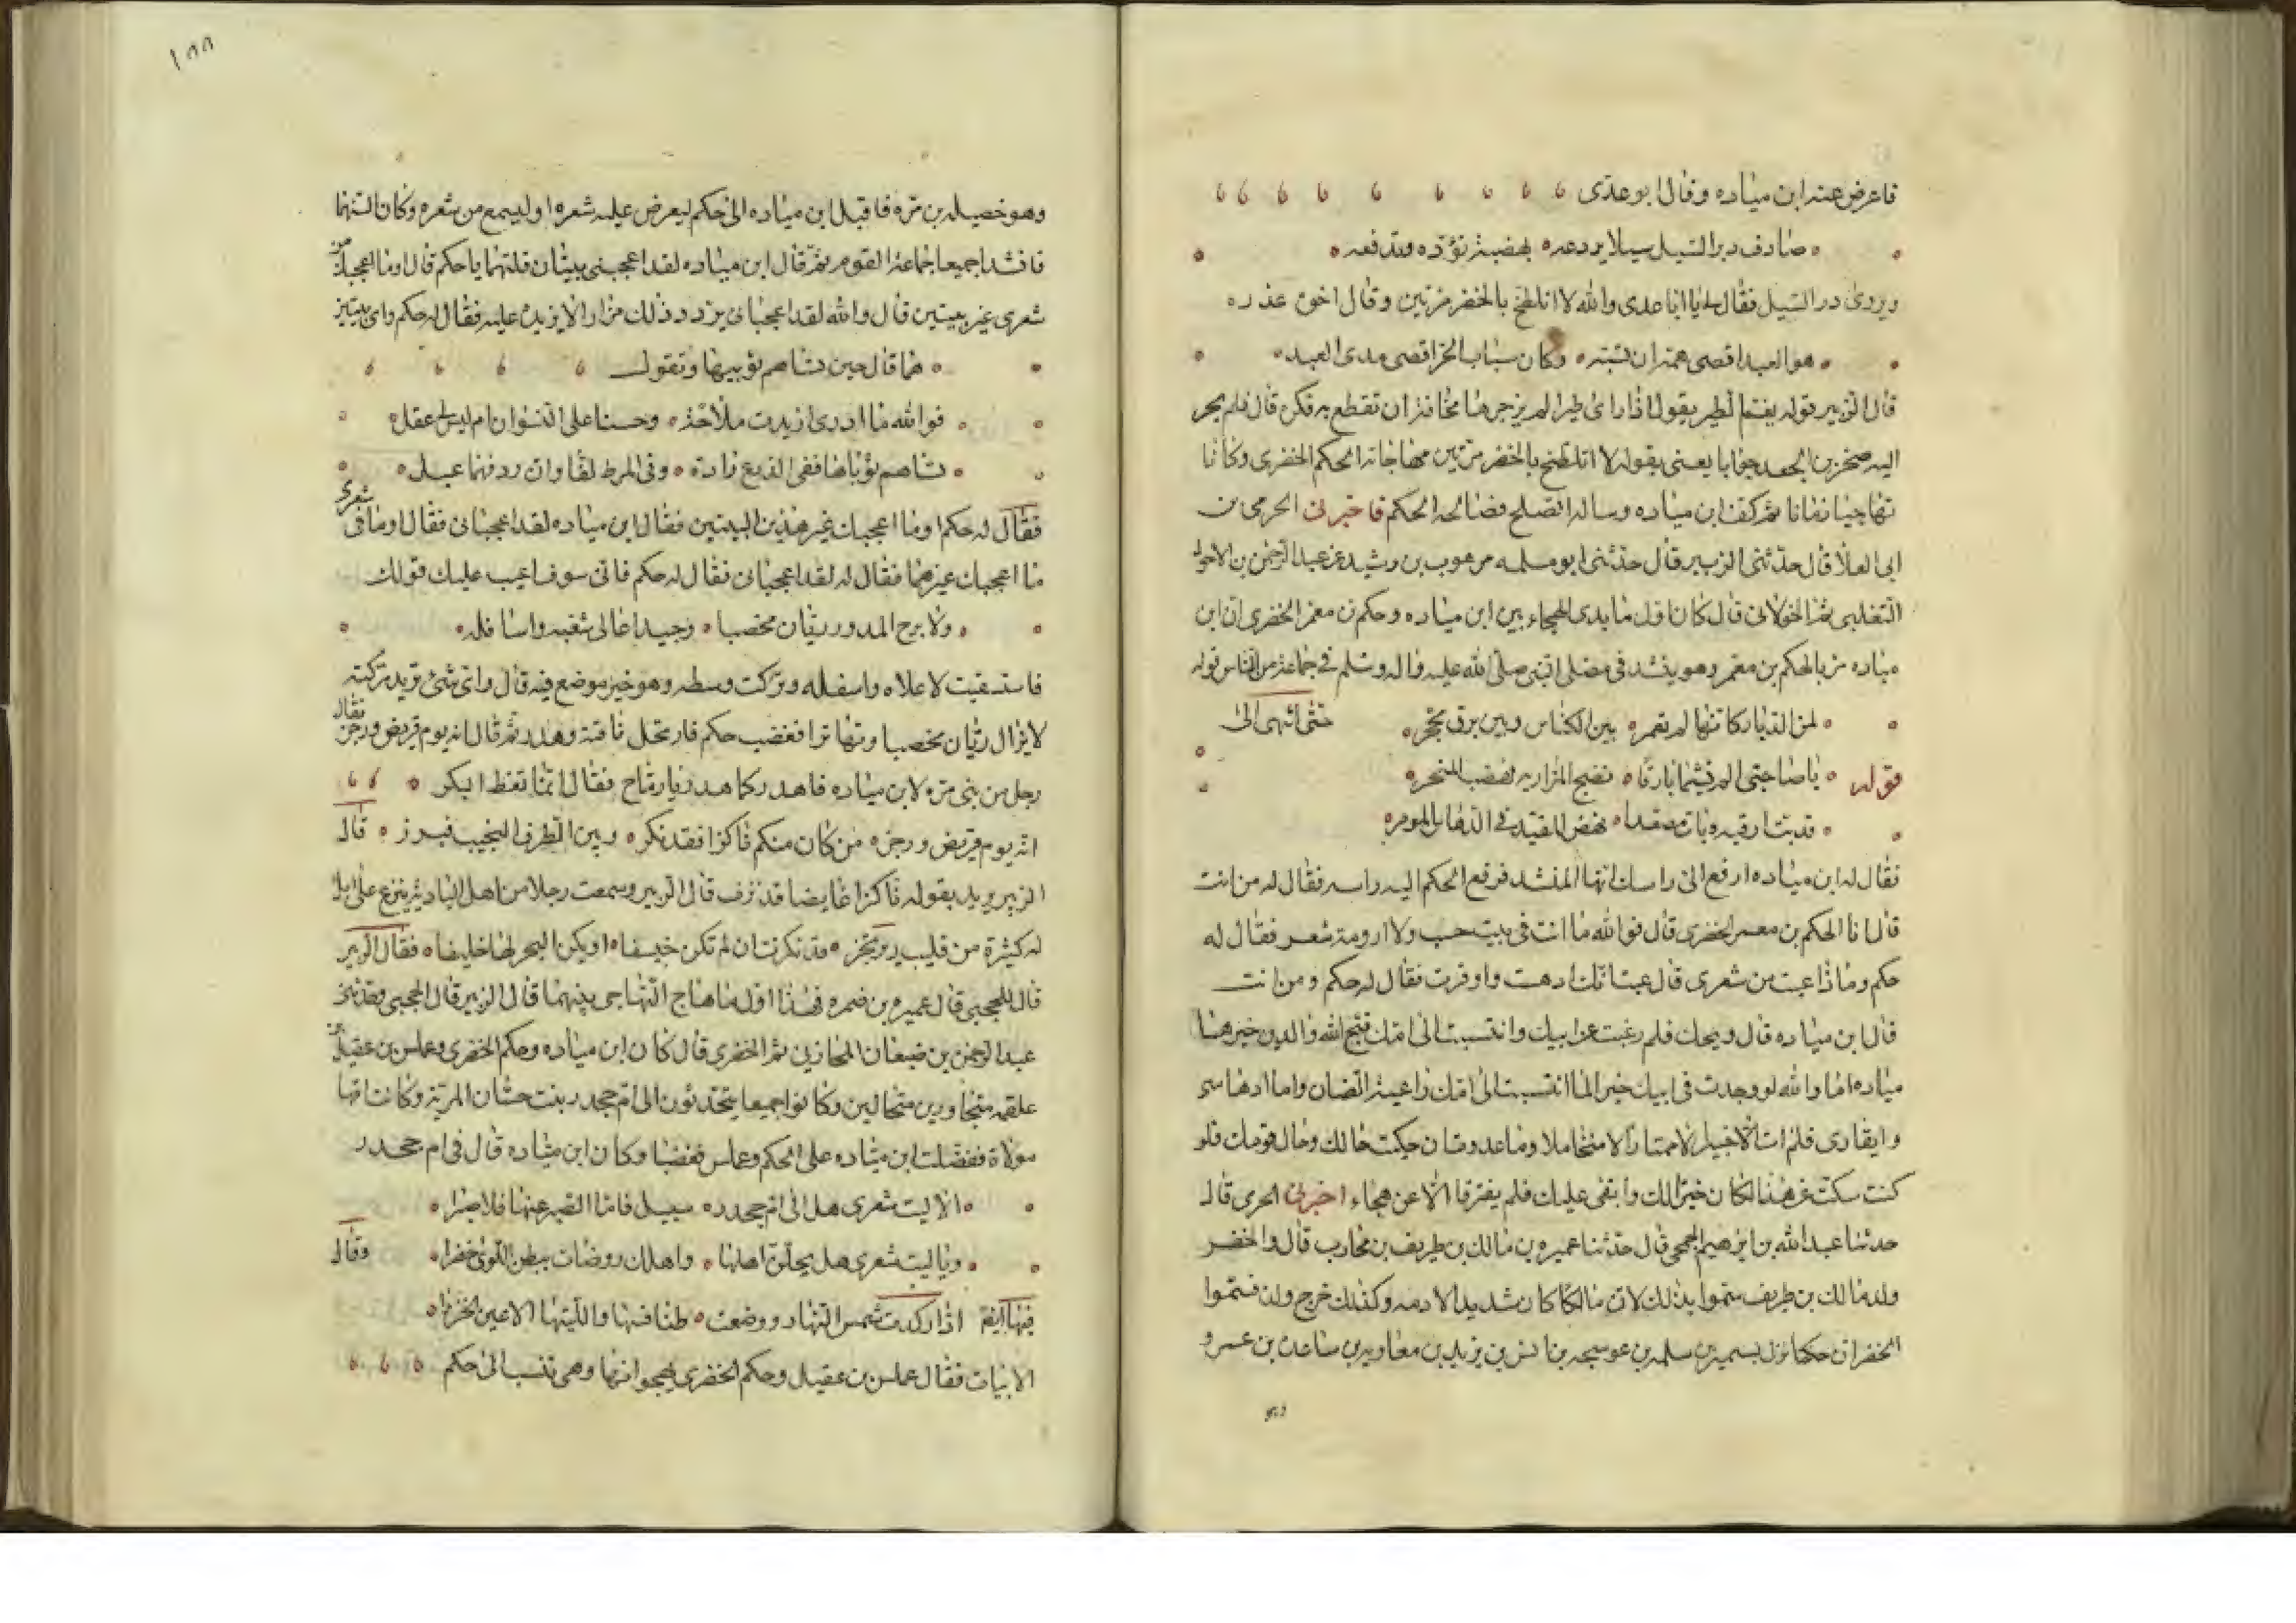 فاعرض عنه ابن مياده وقال ابو عدي
صادف درا السيل سيلا يردعه بهضبة تؤده وتدفعه
ويروى در السيل فقال له يا ابا عدى والله لا اتلطخ بالخضر مرتين وقال اخو عذره
هو العبد اقصى همه ان تسبه وكان سباب الحر اقصى مدى العبد
قال الزبير قوله يقتم الطير يقول اذا راى طيرا لم يزجرها مخافة ان تقطع به فكره قال فلم يحر
اليه صخر بن الجعد جوابا يعنى بقوله لا اتلطخ بالخضر مرتين مهاجاته الحكم الخضرى وكانا
تهاجيا زمانا ثم كف ابن مياده وساله الصلح فصالحه الحكم فاخبرنى الحرمى بن
ابى العلا قال حدثنى الزبير قال حدثنى ابو مسلمه موهوب بن رشيد عن عبد الرحمن بن الاحول
التغلبى ثم الخولانى قال كان اول ما بدى الهجاء بين ابن مياده وحكم بن معمر الخضرى ان ابن
مياده مر بالحكم بن معمر وهو ينشد فى مصلى النبى صلى الله عليه واله وسلم فى جماعة من الناس قوله
لمن الديار كانها لم تعمر بين الكناس وبين برق محجر حتى انتهى الى
قوله يا صاحبى الم تشيما بارقا نضح المزار به فهضب المنحر
قد بت ارقبه وبات مصعدا نهض المقيد فى الدهاس الموقر
فقال له ابن مياده ارفع الى راسك ايها المنشد فرفع الحكم اليه راسه فقال له من انت
قال انا الحكم بن معمر الخضرى قال فوالله ما انت فى بيت حسب ولا ارومة شعر فقال له
حكم وماذا عبت من شعرى قال عبت انك ادهست واوقرت فقال له حكم ومن انت
قال ابن مياده قال ويحك فلم رغبت عن ابيك وانتسبت الى امك قبح الله والدين خيرهما
مياده اما والله لو وجدت فى ابيك خيرا لما انتسبت الى امك راعية الضان واما ادهاسى
وايقارى فلم ات الا خيبر لا ممتارا لا متحاملا وما عدوت ان حكيت حالك وحال قومك فلو
كنت سكت عن هذا لكان خيرا لك وابقى عليك فلم يفترقا الا عن هجاء اخبرنى الحرمى قال
حدثنا عبد الله بن ابرهيم الجمحى قال حدثنا عميره بن مالك بن طريف بن محارب قال والخضر
ولد مالك بن طريف سموا بذلك لان مالكا كان شديد الادمه وكذلك خرج ولده فسموا
الخضر ان حكما نزل بسمير بن سلمه بن عوسجه بن انس بن يزيد بن معاويه بن ساعده بن عمرو
١٥٥
وهو خصيله بن مره فاقبل ابن مياده الى حكم ليعرض عليه شعره او ليسمع من شعره وكان اسنهما
فانشدا جميعا جماعة القوم ثم قال ابن مياده لقد اعجبنى بيتان قلتهما يا حكم قال اوما اعجبك من
شعرى غير بيتين قال والله لقد اعجبانى يردد ذلك مرارا لا يزيده عليه فقال له حكم واى بيتين
هما قال حين تساهم ثوبيها وتقول
فوالله ما ادرى ازيدت ملاحة وحسنا على النسوان ام ليس لى عقل
تساهم ثوباها ففى الدرع رادة وفى المرط لفاوان ردفهما عبل
فقال له حكم اوما اعجبك غير هذين البيتين فقال ابن مياده لقد اعجبانى فقال اوما فى شعرى
ما اعجبك غيرهما فقال له لقد اعجبانى فقال له حكم فانى سوف اعيب عليك قولك
ولا برح الممدور ريان مخصبا وجيد اعالى شعبه واسافله
فاستسقيت لاعلاه واسفله وتركت وسطه وهو خير موضع فيه قال واى شئ تريد تركته
لا يزال ريان مخصبا وتهاترا فغضب حكم فارتحل ناقته وهدر ثم قال انه يوم قريض ورجز فقال
رجل من بنى مره لابن مياده فاهدر كما هدر يا رماح فقال انما تغط البكر
انه يوم قريض ورجز من كان منكم ناكزا فقد نكز وبين الطرف النجيب فبرز قال
الزبير يريد بقوله ناكزا غايضا قد نزف قال الزبير وسمعت رجلا من اهل البادية ينزع على ابل
له كثيرة من قليب يرتجز قد نكزت ان لم تكن خسيفا او يكن البحر لها حليفا فقال الزبير
قال الجمحى قال عميره بن ضمره فهذا اول ما هاج التهاجى بينهما قال الزبير قال الجمحى وحدثنى
عبد الرحمن بن ضبعان المحاربى ثم الخضرى قال كان ابن مياده وحكم الخضرى وعملس بن عقيل بن
علقمه متجاورين متحالين وكانوا جميعا يتحدثون الى ام جحدر بنت حسان المرية وكانت امها
مولاة ففضلت ابن مياده على الحكم وعملس فغضبا وكان ابن مياده قال فى ام جحدر
الا ليت شعرى هل الى ام جحدر سبيل فاما الصبر عنها فلا صبرا
ويا ليت شعرى هل يحلن اهلها واهلك روضات ببطن اللوى خضرا وقال
فيها ايضا اذا ركدت شمس النهار ووضعت طنافسها وليتها الاعين الخزرا
الابيات فقال عملس بن عقيل وحكم الخضرى يهجوانها وهى تنسب الى حكم